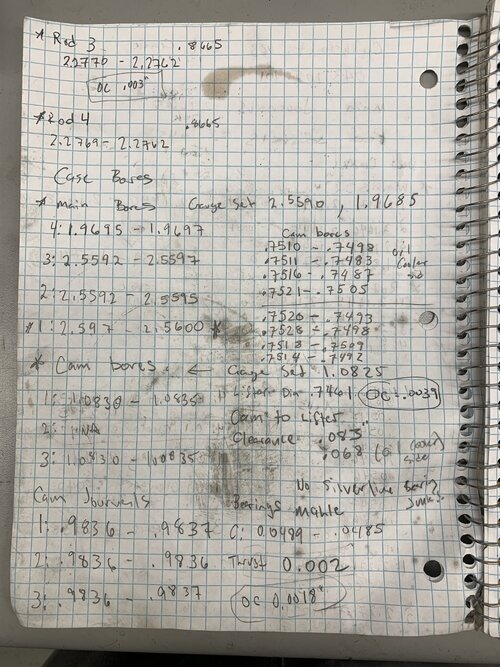 * Rod 3 .8665
2.2770 - 2.2762
OC .003"
* Rod 4 .8665
2.2769 - 2.2762
Case Bores
* main Bores Gauge Set 2.5590 , 1.9685
4: 1.9695 - 1.9697
3: 2.5592 - 2.5597
2: 2.5592 - 2.5595
* 1: 2.597 - 2.5600 *
Cam bores
.7510 - .7498 oil
.7511 - .7483 Cooler
.7516 - .7487
.7521 - .7505
.7520 - .7493
.7528 - .7498
.7513 - .7509
.7514 - .7492
* Cam bores ← Gauge Set 1.0825
1: 1.0830 - 1.0835
2: NA
3: 1.0830 - 1.0835
Lifter Dia .7461 OC .0039
Cam to Lifter
Clearance .083"
.068 (oil cooler side
No Silverline Bearing
Junk
Cam Journals Bearings Mahle
1: .9836 - .9837 C: 0.0499 - .0485
2: .9836 - .9836 Thrust 0.002
3: .9836 - .9837 OC 0.0018"